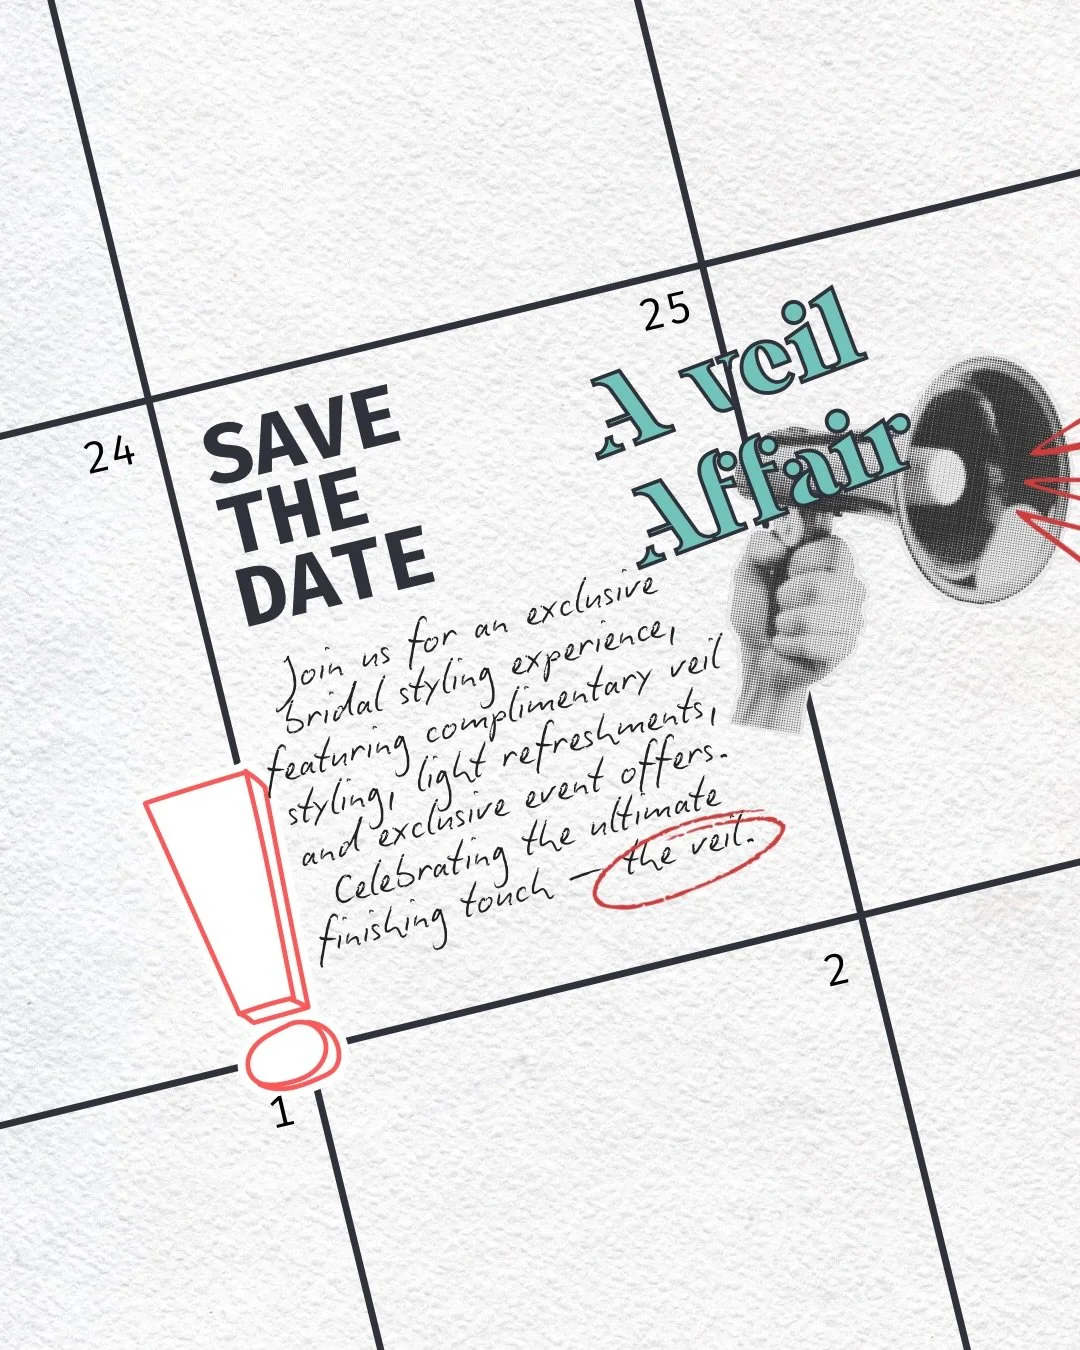 25
A veil
Affair
24
SAVE
THE
DATE
Join us for an exclusive
bridal styling experience,
featuring complimentary veil
styling, light refreshments,
and exclusive event offers.
Celebrating the ultimate
finishing touch — the veil.
2
1